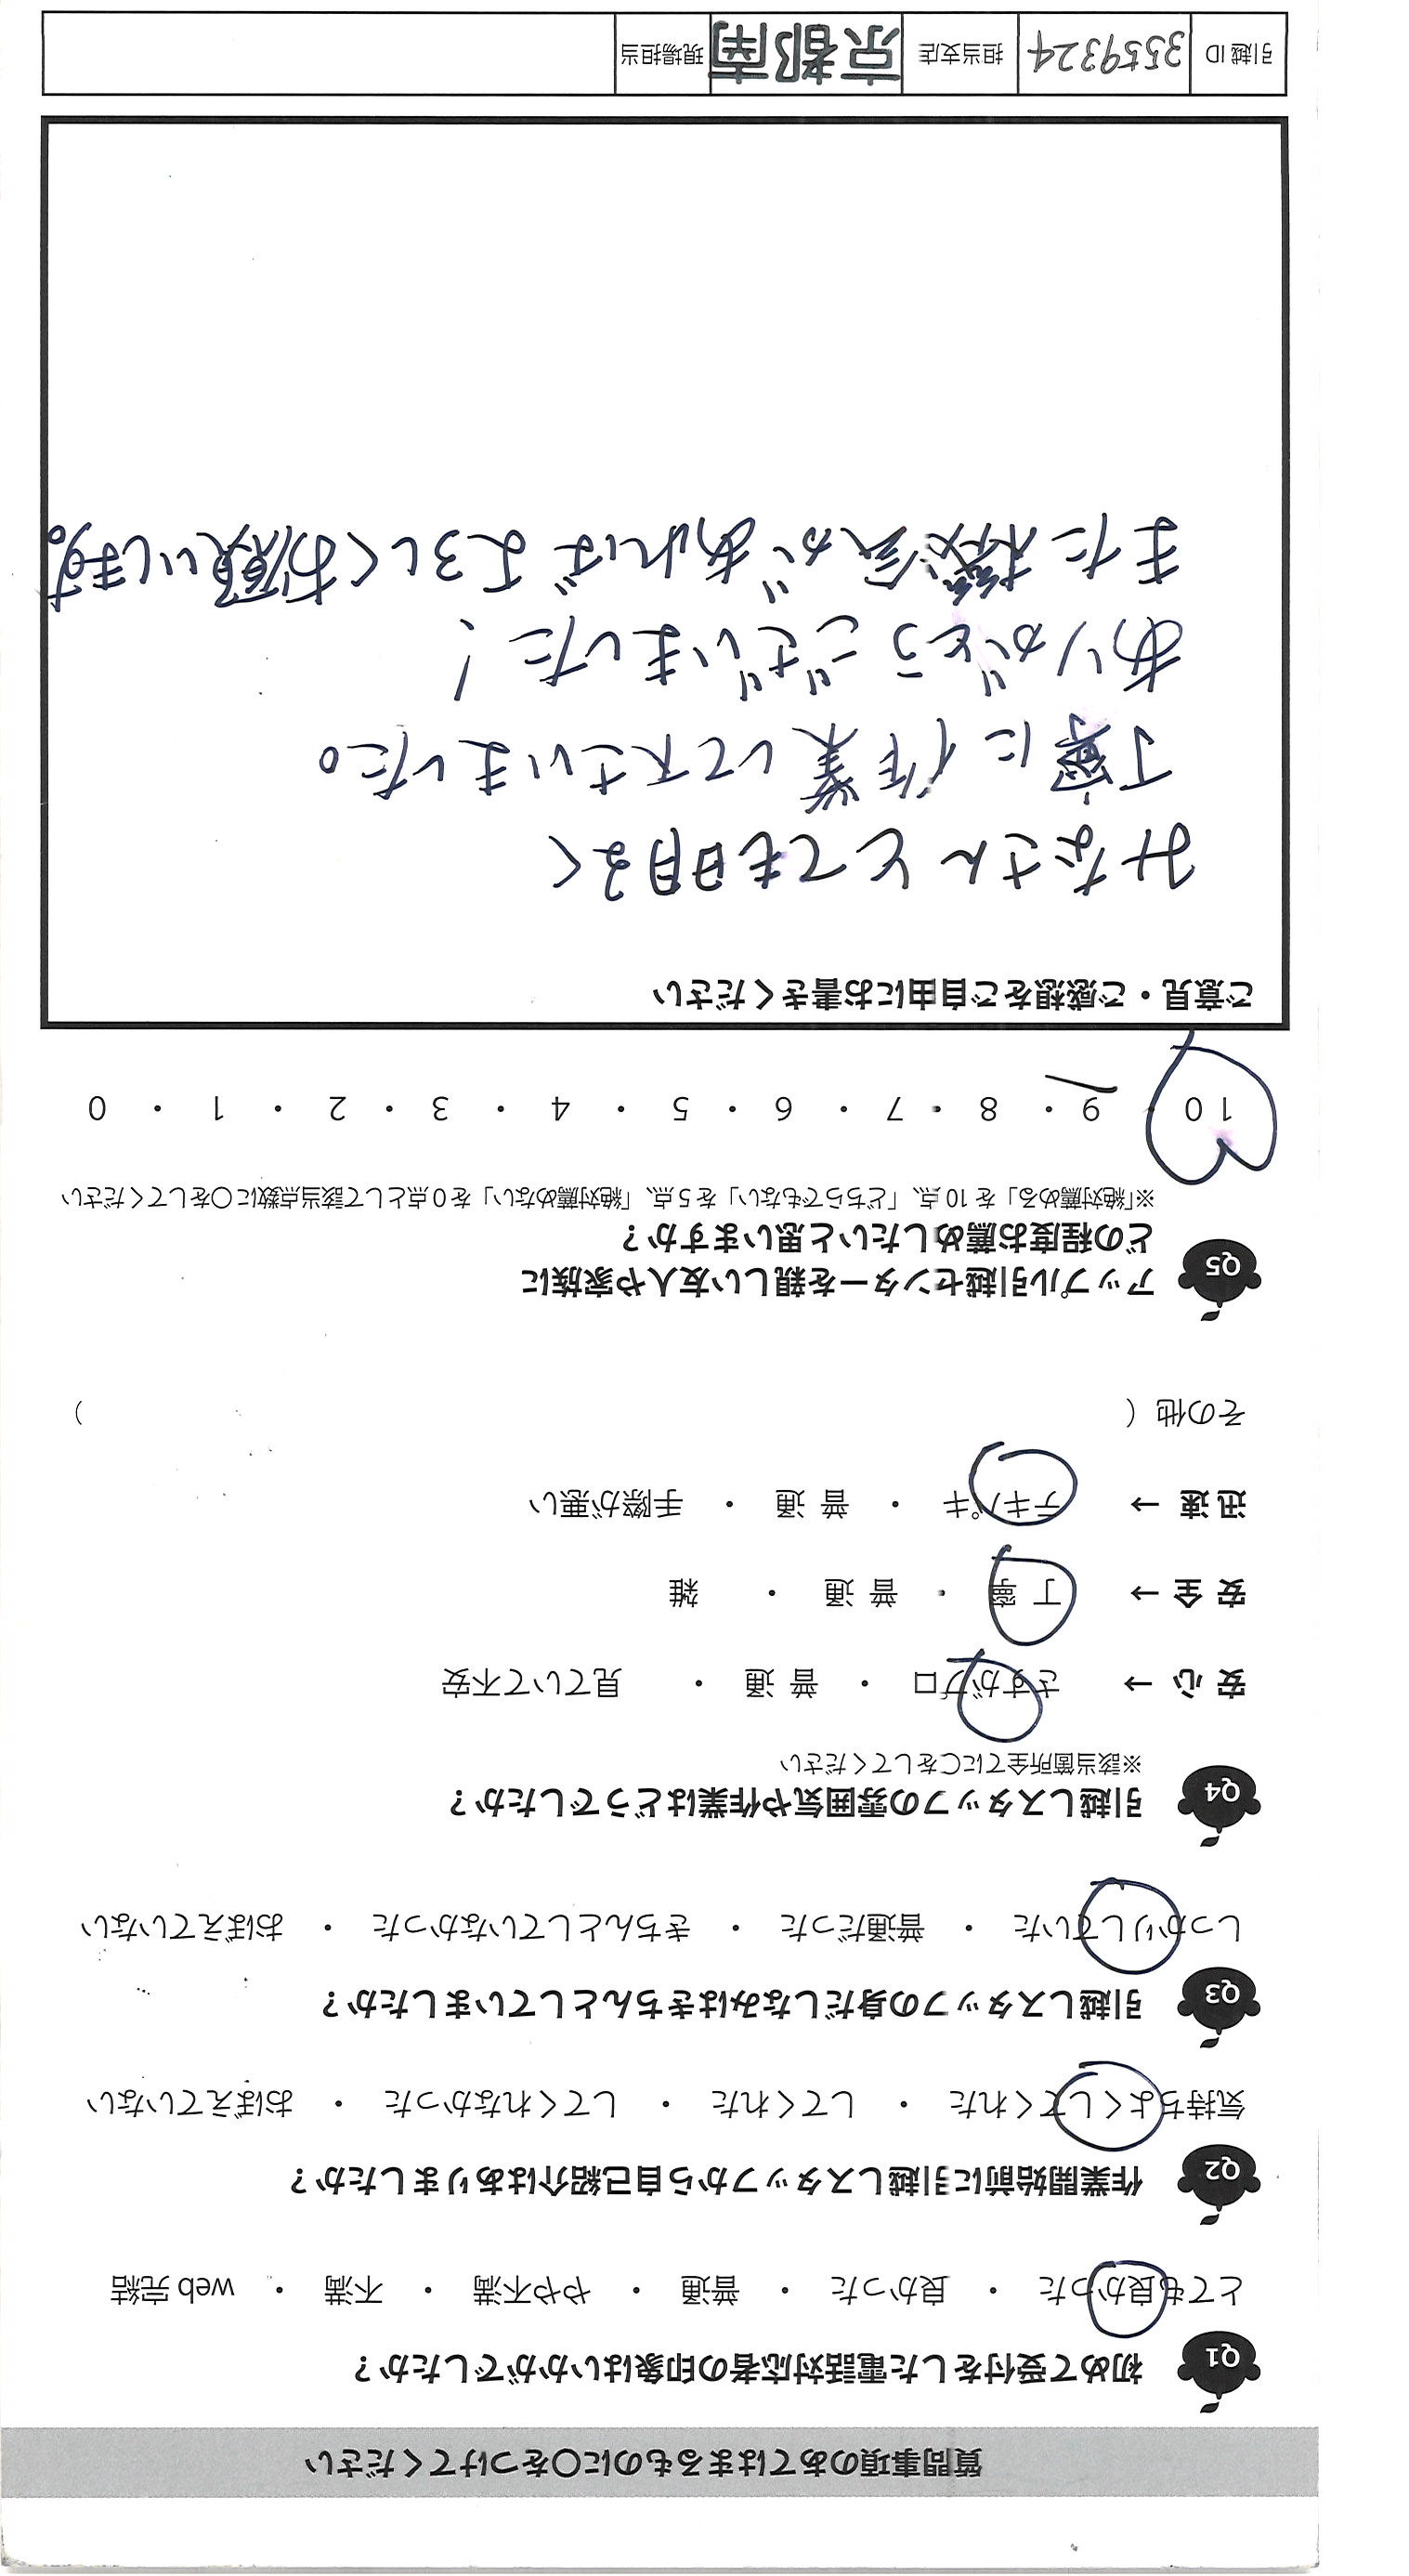 質問事項のあてはまるものに〇をつけてください
Q1 初めて受付をした電話対応者の印象はいかがでしたか？
とても良かった ・ 良かった ・ 普通 ・ やや不満 ・ 不満 ・ web 完結
Q2 作業開始前に引越しスタッフから自己紹介はありましたか？
気持ちよくしてくれた ・ してくれた ・ してくれなかった ・ おぼえていない
Q3 引越しスタッフの身だしなみはきちんとしていましたか？
しっかりしていた ・ 普通だった ・ きちんとしていなかった ・ おぼえていない
Q4 引越しスタッフの雰囲気や作業はどうでしたか？
※該当箇所全てに〇をしてください
安 心 → さすがプロ ・ 普 通 ・ 見ていて不安
安 全 → 丁 寧 ・ 普 通 ・ 雑
迅 速 → テキパキ ・ 普 通 ・ 手際が悪い
その他（ ）
Q5 アップル引越センターを親しい友人や家族に
どの程度お薦めしたいと思いますか？
※「絶対薦める」を 10 点、「どちらでもない」を 5 点、「絶対薦めない」を 0 点として該当点数に〇をしてください
10 ・ 9 ・ 8 ・ 7 ・ 6 ・ 5 ・ 4 ・ 3 ・ 2 ・ 1 ・ 0
ご意見・ご感想をご自由にお書きください
みなさんとても明るく
丁寧に作業して下さいました。
ありがとうございました！
また機会があればよろしくお願いします。
引越 ID 3559324 担当支店 京都南 現場担当